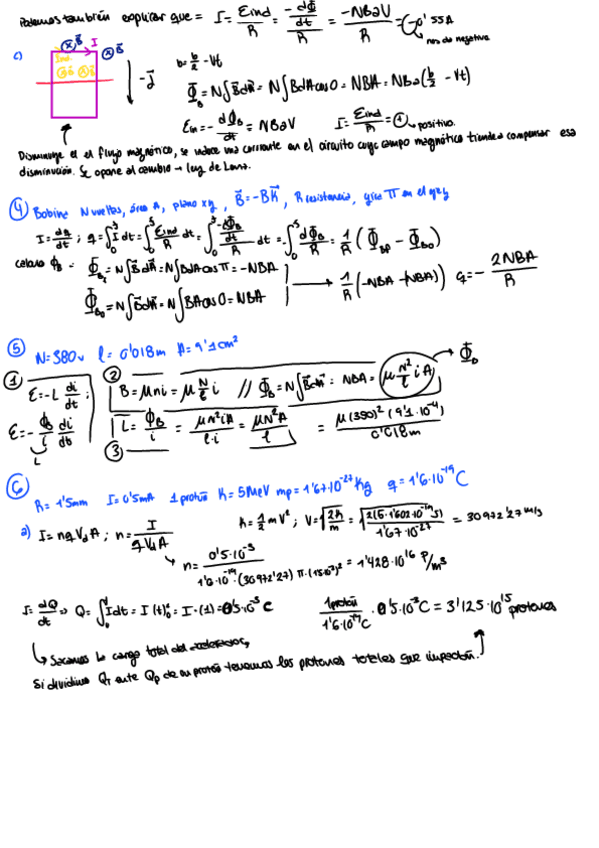 Podemos también explicar que = I = Eind/R = (-dΦ/dt)/R = -NBav/R = - 0'55A
nos da negativa
c) ⊗B⃗ I ⊗B⃗
Iind
⊙B⃗ ⊗B⃗
-j⃗
b = b/2 - vt
Φ_B = N∫B⃗dA⃗ = N∫BdA cos0 = NBA = NBa(b/2 - vt)
Ein = - dΦ_B/dt = NBav I = Eind/R = + positivo.
Disminuye el el flujo magnético, se induce una corriente en el circuito cuyo campo magnético tiende a compensar esa
disminución. Se opone al cambio → ley de Lenz.
④ Bobina N vueltas, área A, plano xy, B⃗ = -BK⃗, R resistencia, gira π en el eje y
I = dq/dt ; q = ∫Idt = ∫Eind/R dt = ∫(-dΦ_B/dt)/R dt = -∫dΦ_B/R = 1/R (Φ_Bf - Φ_B0)
calculo Φ_B = Φ_Bf = N∫B⃗dA⃗ = N∫BdA cosπ = -NBA
Φ_B0 = N∫B⃗dA⃗ = N∫BA cos0 = NBA → 1/R (-NBA -(NBA)) q = - 2NBA/R
⑤ N=380v l = 0'018m A = 9'1cm²
① E = -L di/dt ;
E = - Φ_B/i di/dt
L
② B = μni = μ N/l i // Φ_B = N∫B⃗dA⃗ = NBA = μ N²/l i A → Φ_B
③ L = Φ_B/i = μN²iA/l·i = μN²A/l = μ(380)²(9'1·10⁻⁴)/0'018m
⑥ R = 1'5mm I = 0'5mA 1 protón K = 5MeV mp = 1'67·10⁻²⁷Kg q = 1'6·10⁻¹⁹C
a) I = nqVdA ; n = I/qVdA K = 1/2 mV² ; V = √(2K/m) = √(2(5·1'602·10⁻¹⁹J)/1'67·10⁻²⁷) = 30972'27 m/s
n = 0'5·10⁻³/1'6·10⁻¹⁹·(30972'27)·π·(1'5·10⁻³)² = 1'428·10¹⁶ P/m³
I = dQ/dt ⇒ Q = ∫₀¹Idt = I(t)₀¹ = I·(1) = 0'5·10⁻³C 1 protón/1'6·10⁻¹⁹C · 0'5·10⁻³C = 3'125·10¹⁵ protones
↳ Sacamos la carga total del acelerador,
Si dividimos QT ente Qp de un protón tenemos los protones totales que impactan.